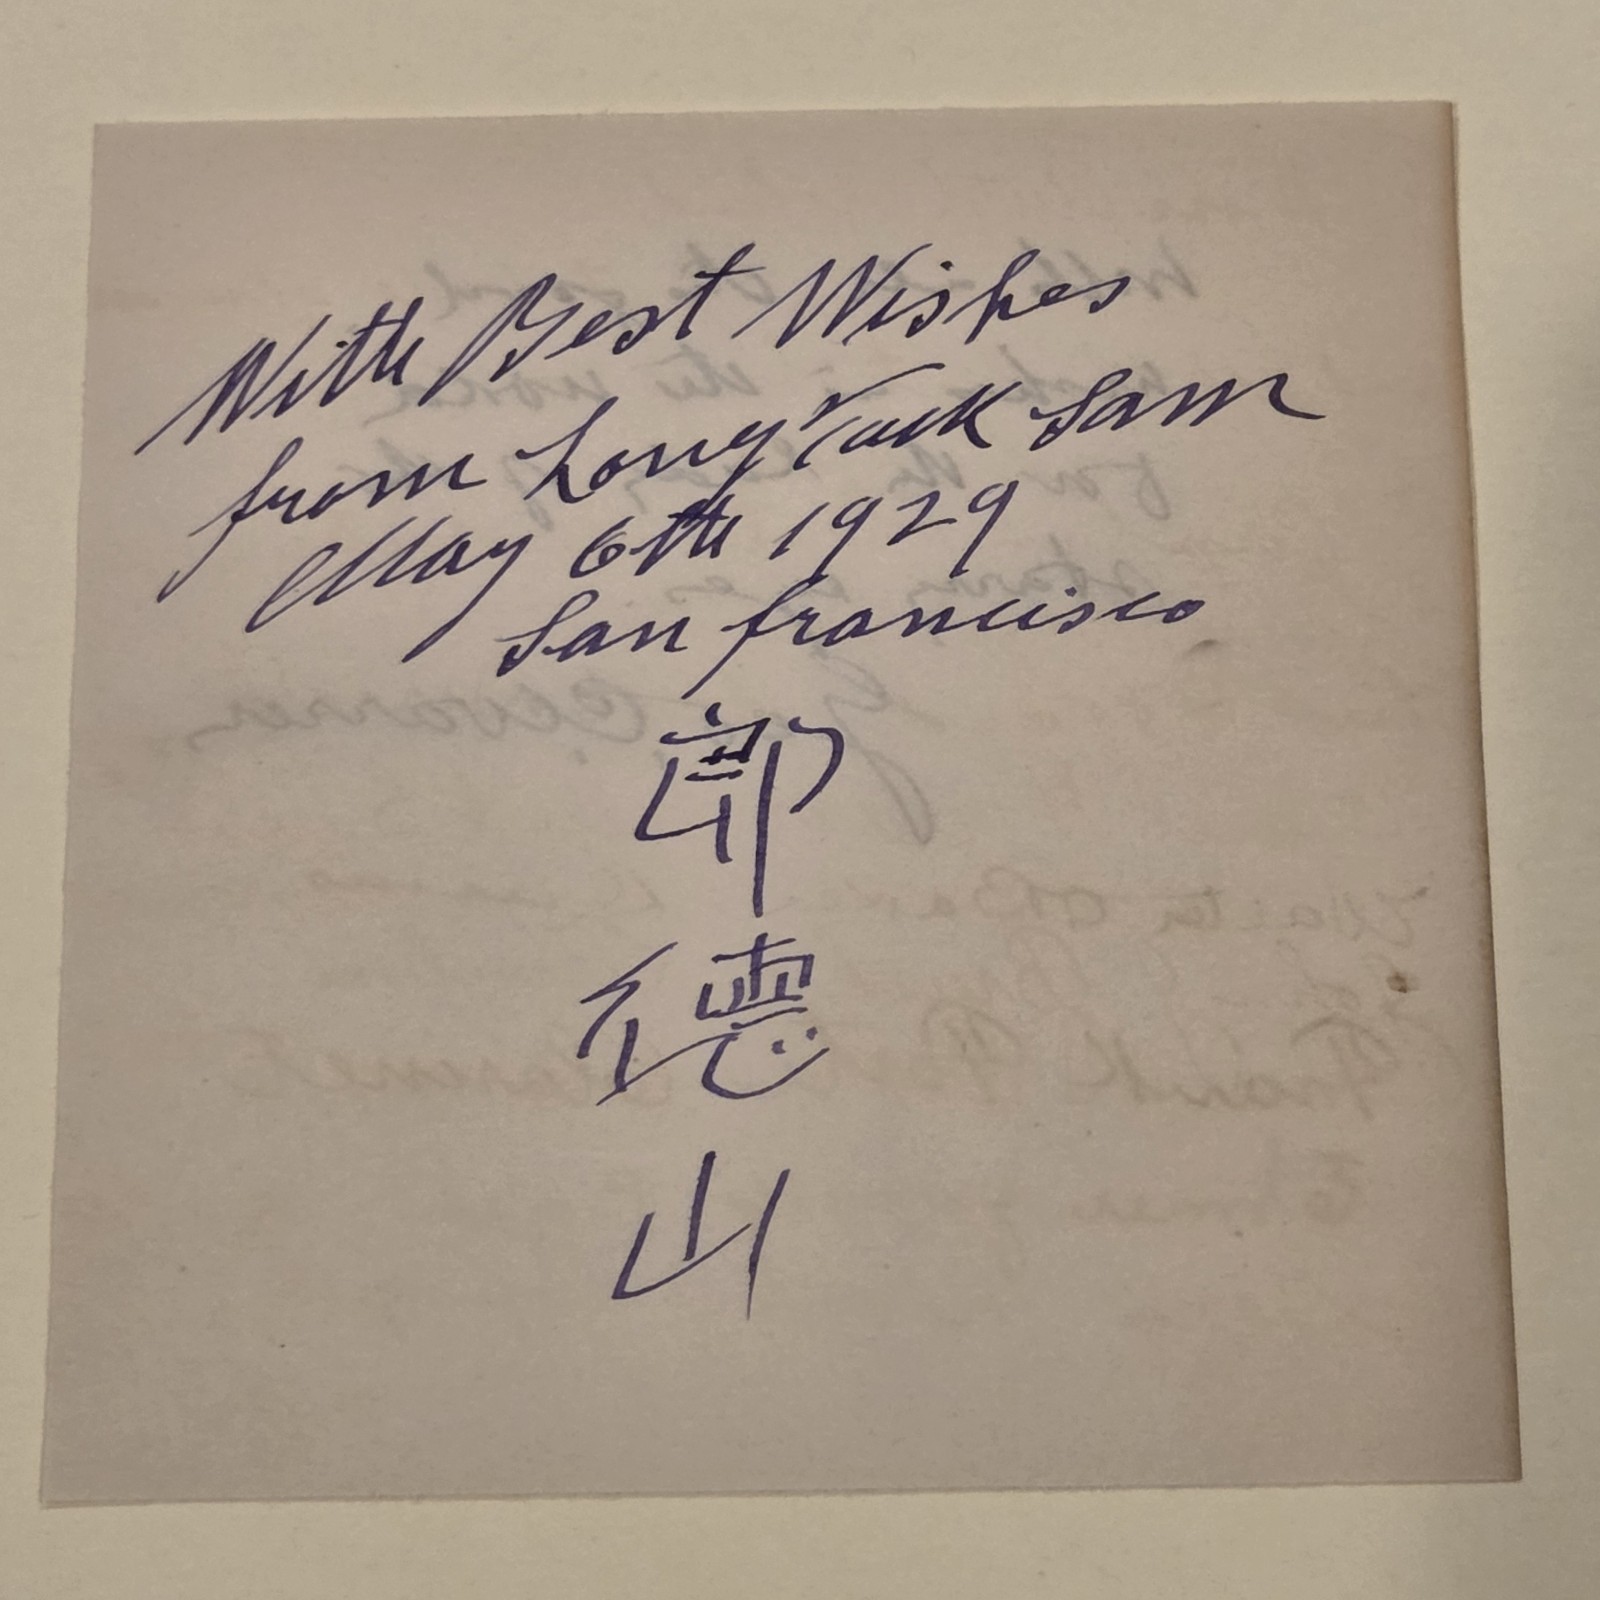 With Best Wishes
from Long Tack Sam
May 6th 1929
San Francisco
郎
德
山